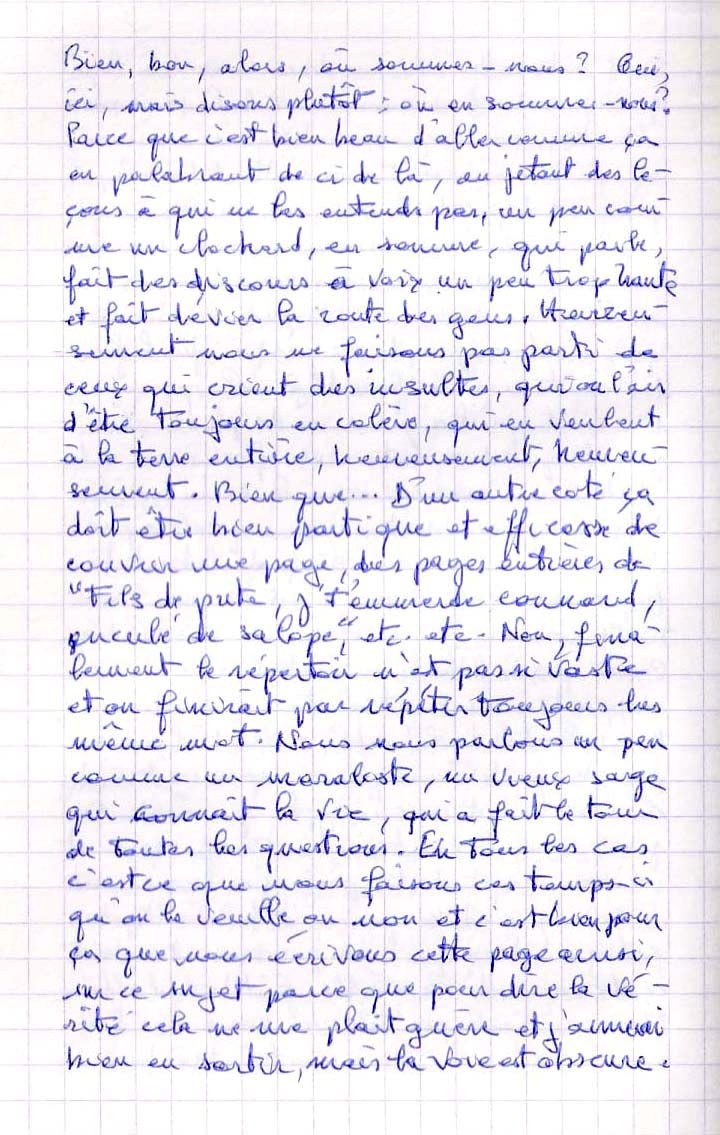 Bien, bon, alors, où sommes-nous? Oui,
ici, mais disons plutôt: où en sommes-nous?
Parce que c'est bien beau d'aller comme ça
en palabrant de ci de là, en jetant des le-
çons à qui ne les entends pas, un peu com-
me un clochard, en somme, qui parle,
fait des discours à voix un peu trop haute
et fait dévier la route des gens. Heureu-
sement nous ne faisons pas parti de
ceux qui crient des insultes, qui on l'air
d'être toujours en colère, qui en veulent
à la terre entière, heureusement, heureu-
sement. Bien que... D'un autre coté ça
doit être bien partique et efficasse de
couvrir une page, des pages entières de
"Fils de pute, j't'emmerde connard,
enculé de salope", etc. etc. Non, fina-
lement le répertoir n'est pas si vaste
et on finirait par répéter toujours les
même mot. Nous nous parlons un peu
comme un moraliste, un vieux sage
qui connait la vie, qui a fait le tour
de toutes les questions. En tous les cas
c'est ce que nous faisons ces temps-ci
qu'on le veuille ou non et c'est bien pour
ça que nous écrivons cette page ainsi,
sur ce sujet parce que pour dire la vé-
rité cela ne me plait guère et j'aimerai
bien en sortir, mais la voie est obscure.